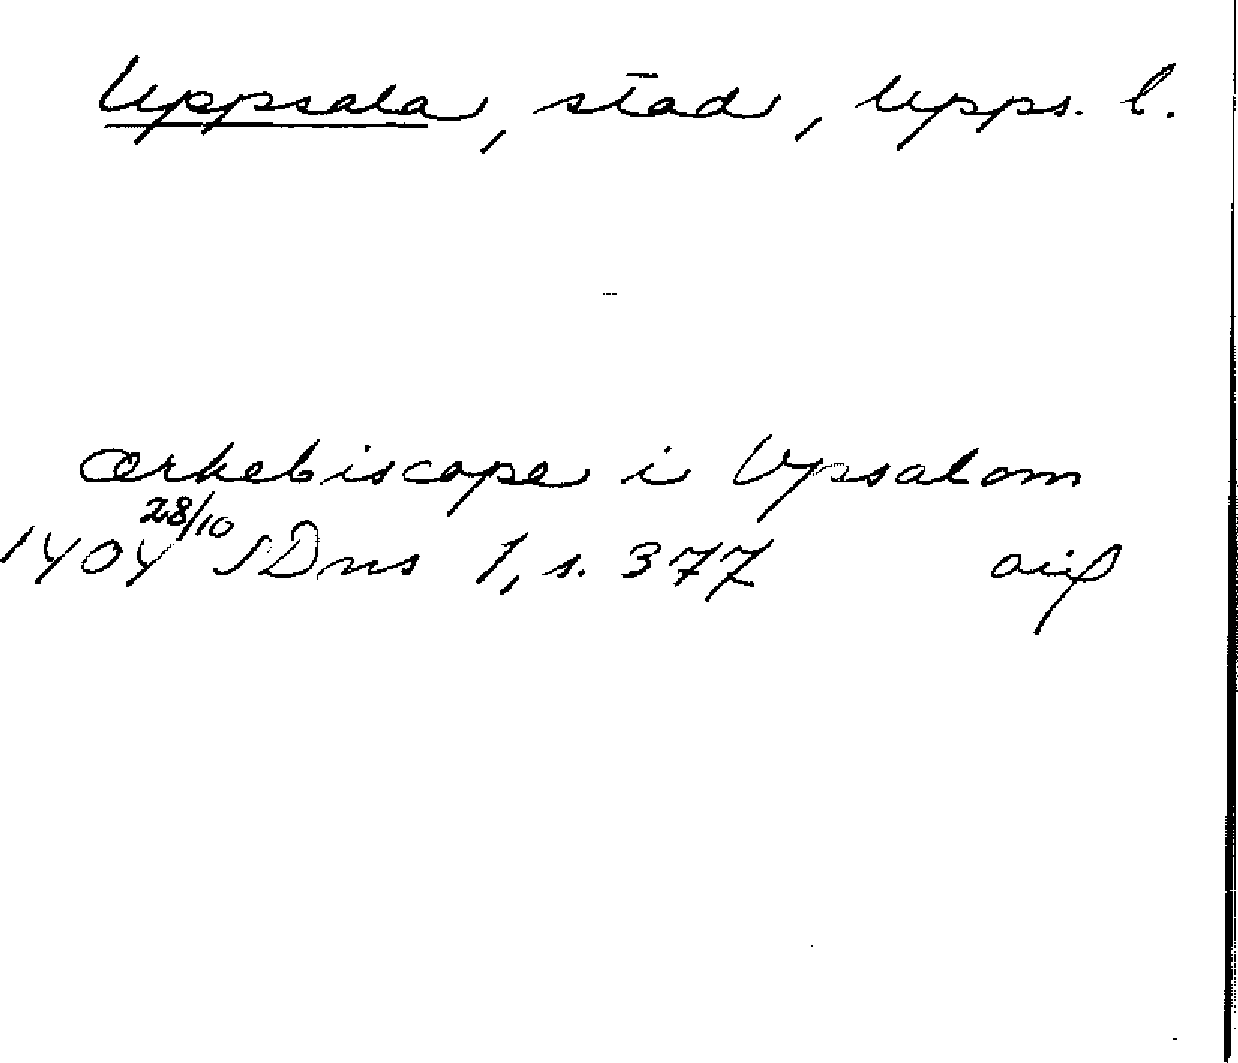 Uppsala, stad, Upps. l.
ærkebiscope i Vpsalom
1404 28/10 SDns 1, s. 377